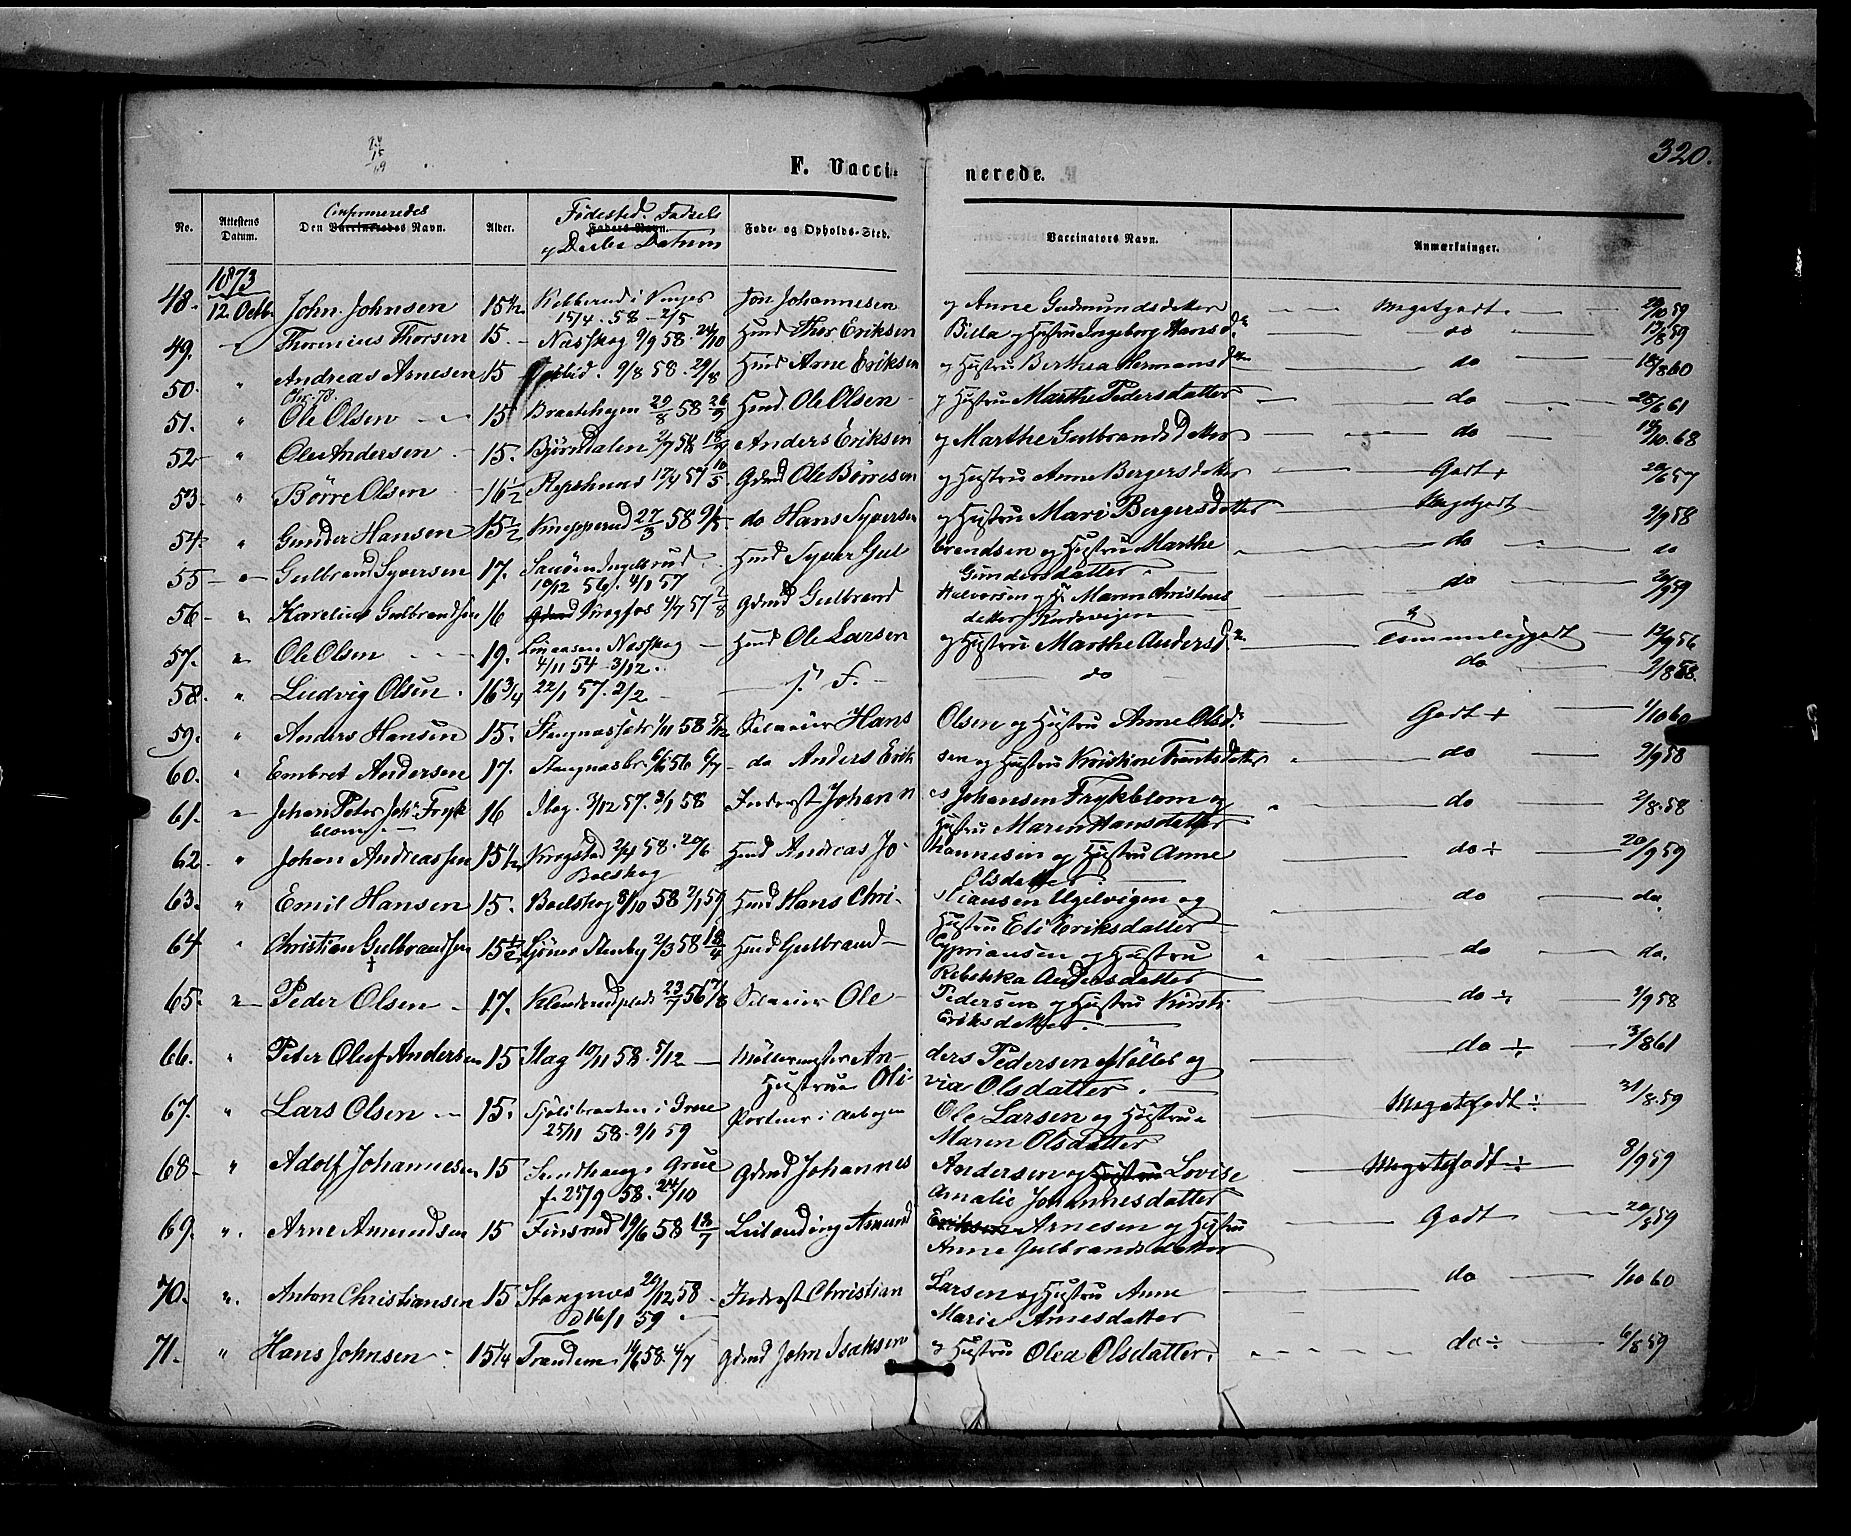 320.
F. Vacci- nerede.
No. Attestens Datum. Confirmeredes Den Vaccineredes Navn. Alder. Fødested. Fødsels Faders Navn. og Daabs Datum Føde- og Opholds-Sted. Vaccinators Navn. Anmærkninger.
1873
48. 12. Octb. John Johnsen 15 1/2 i Vinger 15/4. 58 - 2/5 Jon Johannesen og Anne Gudmundsdatter Megetgodt 29/10 59
49. Thorenius Thorsen 15. Næsskog 9/9 58. 24/10 Hmd Thor Eriksen Billa og Hustru Ingeborg Hansd. do 13/8 59
50. " Andreas Arnesen 15 9/8 58. 29/8 Hmd Arne Eriksen og Hustru Berthea Hermansd. do 18/8 60
51. " Ole Olsen 15 Braatehagen 29/8 58 26/9 Hmd. Ole Olsen og Hustru Marthe Pedersdatter do 25/6 61
52 " Ole Andersen 15. Bjørndalen 2/7 58 18/7 Anders Eriksen og Marthe Gulbrandsdatter do 10/10. 68
53. " Børre Olsen 16 1/2 17/4 57 10/5 Gdmd Ole Børresen og Hustru Anne Bergersdatter Godt + 20/6 57
54. " Gunder Hansen 15 1/2 Knapperud 27/3 58 9/5 do Hans Syversen og Hustru Mari Bergersdatter Megetgodt 2/9 58
55 " Gulbrand Syversen 17. Ingelsrud 10/12 56. 4/1 57 Hmd Syver Gul brandsen og Hustru Marthe Gundersdatter do do
56 " Karelius Gulbrandsen 16 Krogfos 4/7 57 2/8 Gdmd Gulbrand Halvorsen og H. Maren Christens datter do 20/9 59
57. " Ole Olsen 19. Næsskog 4/11 54 - 3/12. Hmd Ole Larsen og Hustru Marthe Andersd. Temmeliggodt 12/9 56
58. " Ludvig Olsen 16 3/4 22/1 57. 2/2 s. F. do do 2/8 58.
59. " Anders Hansen 15. Stangnæssetr 1/11 58 5/12 Selveier Hans Olsen og Hustru Anne Olsd. Godt + 1/10 60
60. " Embret Andersen 17. Stangnæsbr. 6/6 56 6/7 do Anders Erik sen og Hustru Kristine Frantsdatter do 2/9 58
61. " Johan Peter Joh. Fryk blom 16 Slag. 3/12 57. 3/1 58 Inderst Johann es Johansen Frykblom og Hustru Maren Hansdatter do 2/8. 58
62 " Johan Andreassen 15 1/2 Krogstad 2/4 58. 20/6 Bælskog Hmd Andreas Jo- hannesen og Hustru Anne Olsdatter do ÷ 20/9 59
63. " Emil Hansen 15. Baelskog 8/10 58 2/1 59 Hmd Hans Chri- stiansen Ugelvigen og Hustru Eli Eriksdatter do do.
64 " Christian Gulbrandsen 15 1/2 Stenby 2/3 58 18/4 Hmd Gulbrand Cypriansen og Hustru Rebekka Andersdatter do do.
65. " Peder Olsen 17. 23/7 56 17/8 Selveier Ole Pedersen og Hustru Kirsti Eriksdatter. do ÷ 2/9 58
66. " Peter Oluf Andersen 15 Slag 10/11 58. 5/12 Møllermester An- ders Pedersen Mølles og Hustrue Oli- via Olsdatter. do ÷ 3/8 61
67. " Lars Olsen 15. Sjølibraaten i Grue 25/11 58. 9/1 59 i Aabogen Ole Larsen og Hustrue Maren Olsdatter Megetgodt ÷ 31/8. 59
68 " Adolf Johannesen 15 i Grue f. 25/9 58. 24/10 Gdmd Johannes Andersen og Hustru Lovise Amalie Johannesdatter Megetgodt ÷ 8/9 59
69. " Arne Amundsen 15 Finsrud 19/6 58 18/7 Leilænding Amund Eriksen Arnesen og Hustru Anne Gulbrandsdatter Godt 20/8 59
70. " Anton Christiansen 15 Stangnæs 20/12 58 D 16/1 59 Inderst Christian Larsen og Hustru Anne Marie Arnesdatter do 1/10 60
71. " Hans Johnsen 15 1/4 14/6 58. 4/7 Gdmd John Isaksen og Hustru Olea Olsdatter. do ÷ 6/8. 59